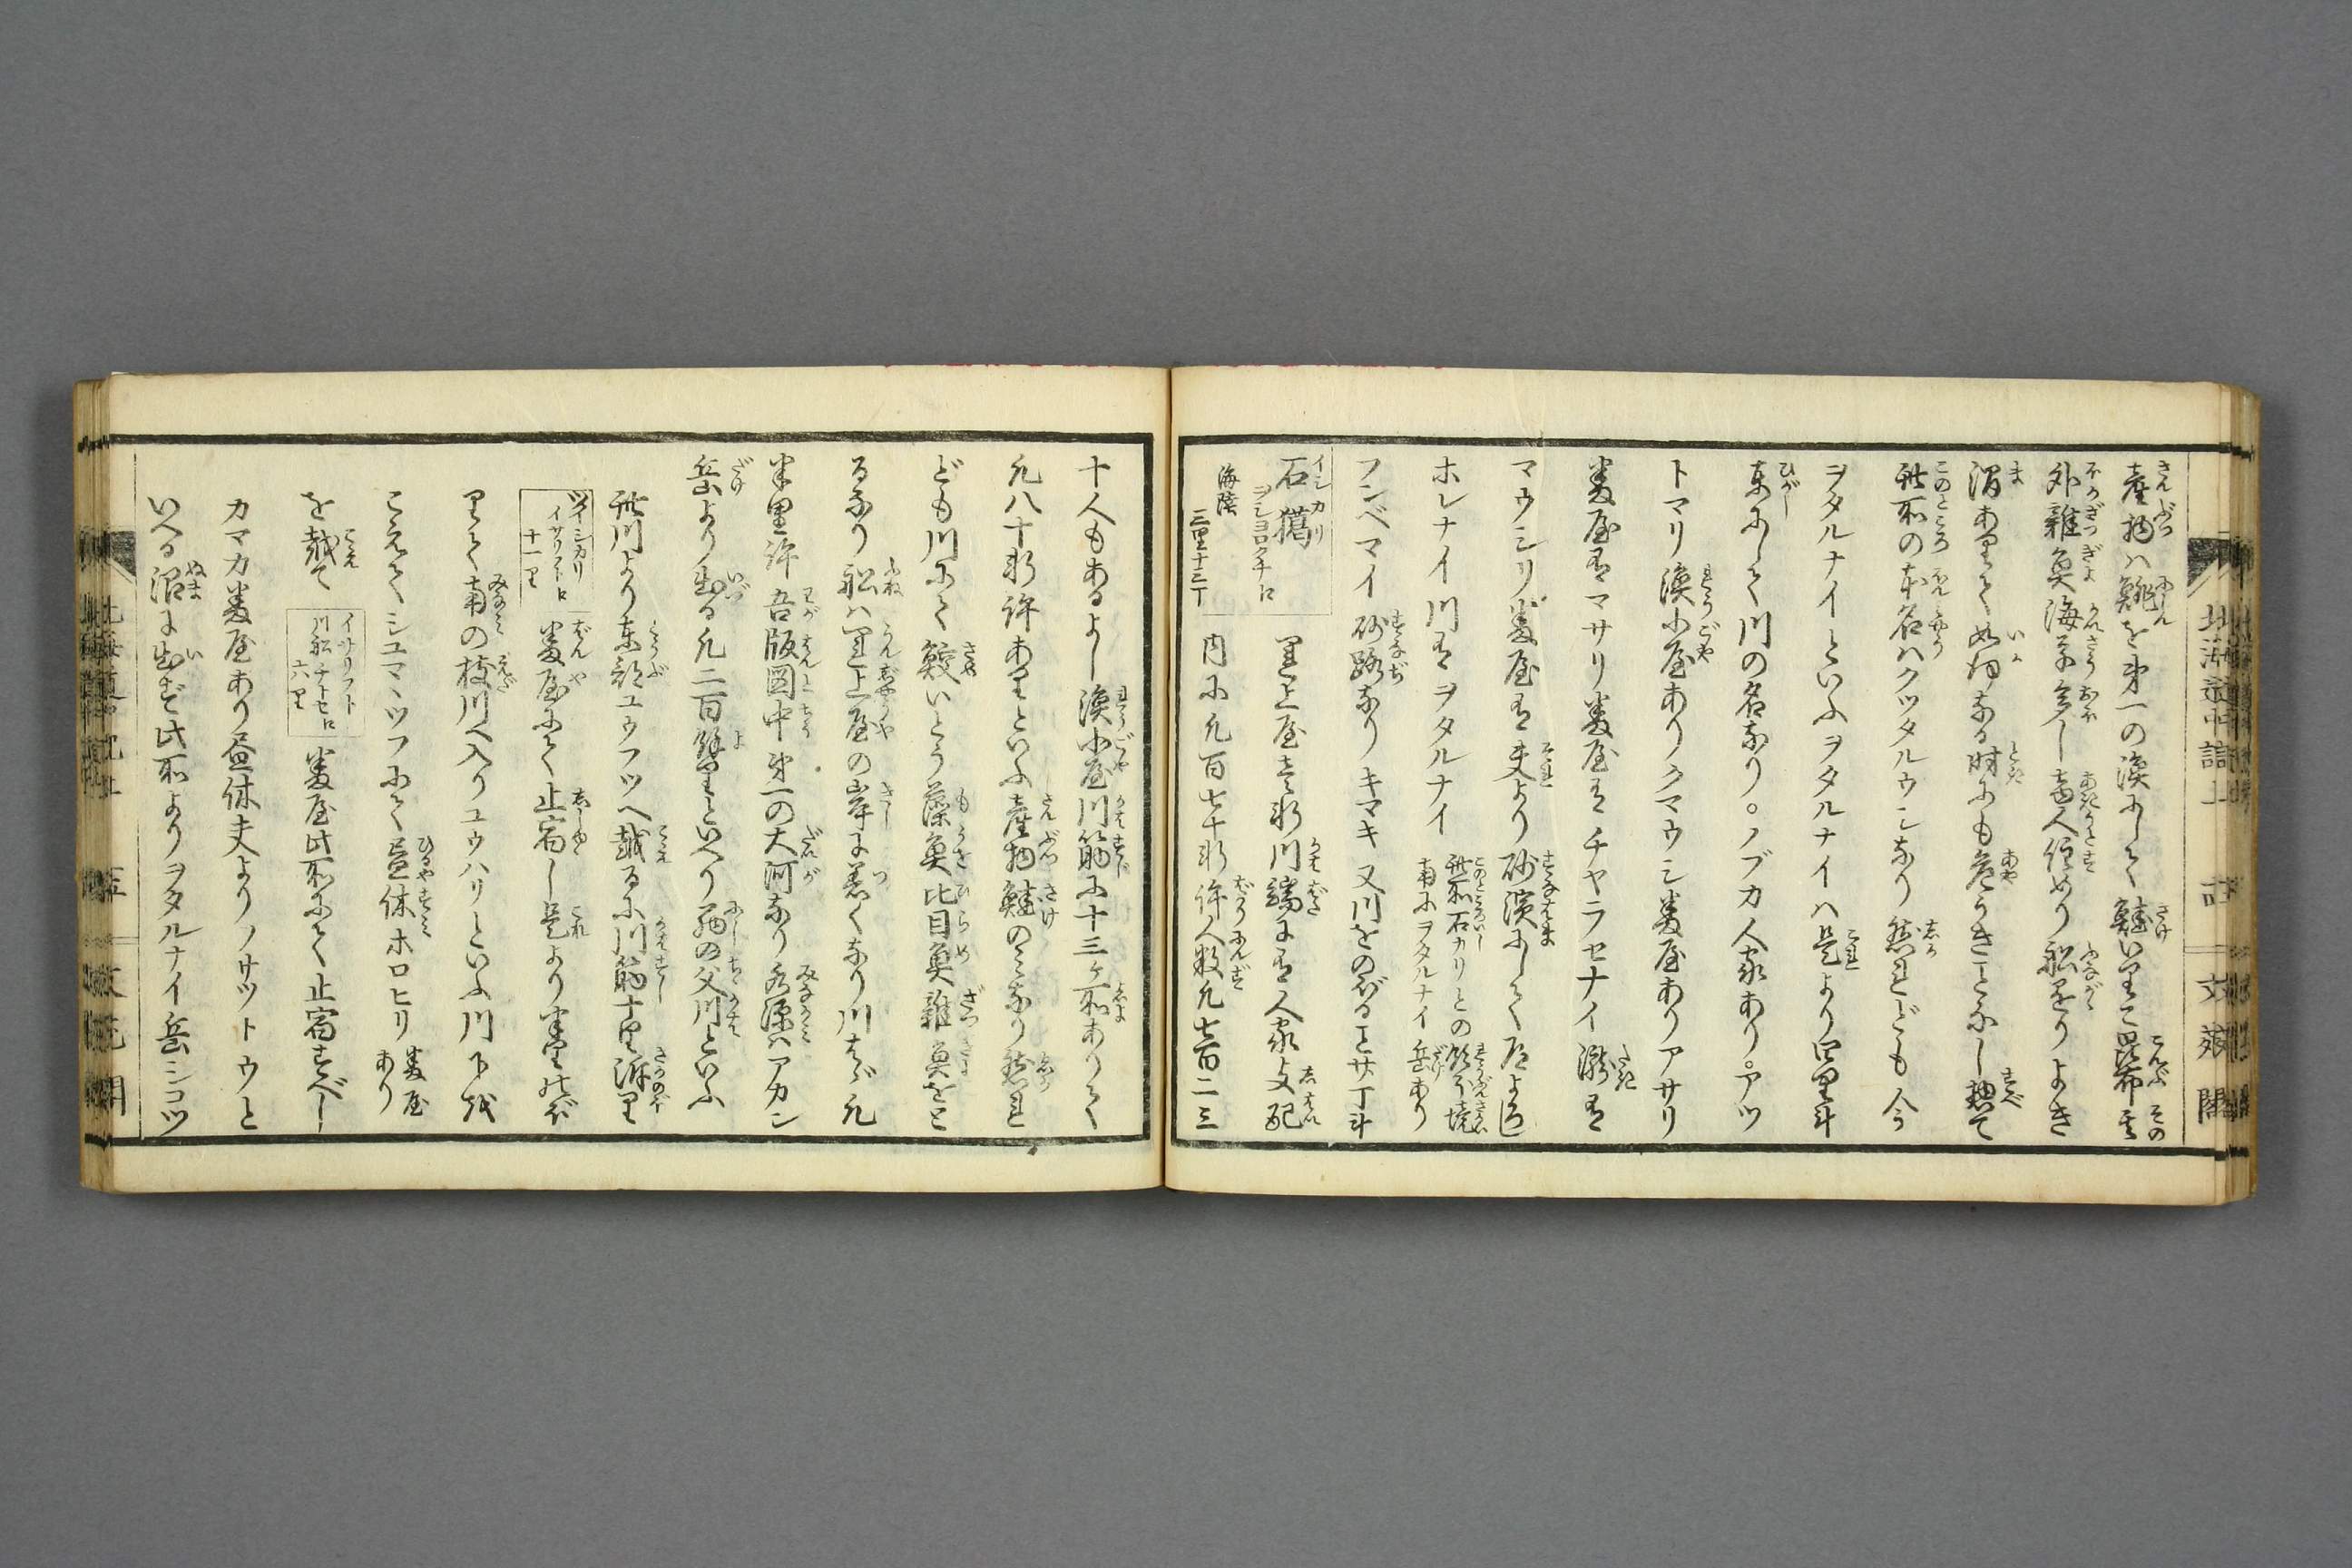 産物ハ鯡を第一の漁にして鮭いりこ昆布其
外雑魚海草多し夷人住めり船をりよき
澗ありて如何なる時にも危うきことなし惣て
此所の本名ハクツタルウシなり然れども今
ヲタルナイといふヲタルナイハ是より四里斗
東にして川の名なり。ノブカ人家あり。アツ
トマリ漁小屋ありクマウシ番屋ありアサリ
番屋有マサリ番屋有チヤラセナイ瀧有
マウシリ番屋有夫より砂濱にして
ホシナイ川有ヲタルナイ
此所石カリとの領分境
南にヲタルナイ岳あり
フンベマイ砂路なりキマキ又川をのぼること廿丁斗
石狩 イシカリ
海陸 三里十三丁
運上屋壱軒川端に有人家支配
内に凡百七十軒許人数凡七百二三
十人もあるよし漁小屋川筋に十三ヶ所ありて
凡八十軒許ありといふ産物鮭のミなり然れ
ども川にて鮫いとう藻魚比目魚雑魚をと
るなり船ハ運上屋の岸に着くなり川はゞ凡
半里許吾版図中第一の大河なり水源ハアカン
岳より出る凡二百餘里といへり西の父川といふ
此川より東部ユウフツへ越るに川筋十里泝り
ツイシカリ
イサリフトヘ
十一里
番屋にて止宿し是より半里程
りて南の枝川へ入りユウハリといふ川下を
こえてシユマヽツフにて昼休ホロヒリ番屋あり
を越て
イサリフト
川船チトセヘ
六里
番屋此所にて止宿すべし
カマカ番屋あり昼休夫よりノサツトウと
いへる沼に出で此所よりヲタルナイ岳シコツ
北海道中記上
文苑閣